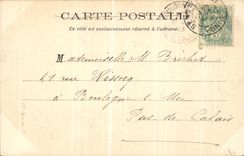 CARTE POSTALE
Ce côté est exclusivement réservé à l'adresse.
Mademoiselle M Bréchet
41 rue Wissocq
à Boulogne s. Mer
Pas de Calais